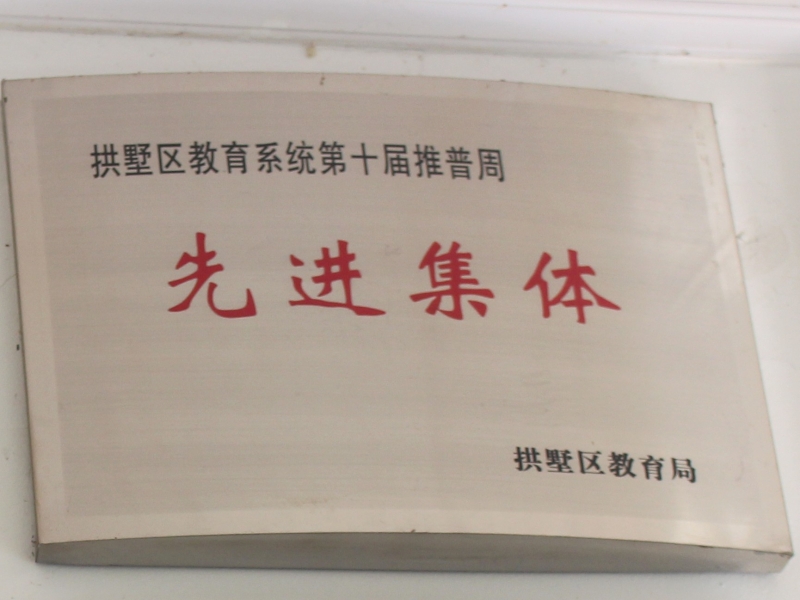 拱墅区教育系统第十届推普周
先进集体
拱墅区教育局